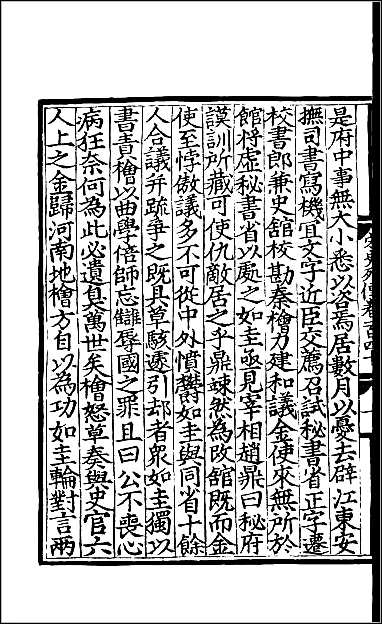 是府中事無大小悉以咨焉居數月以憂去辟江東安
撫司書寫機宜文字近臣交薦召試秘書省正字遷
校書郎兼史館校勘秦檜力建和議金使來無所於
館將虛秘書省以處之如圭亟見宰相趙鼎曰秘府
謨訓所藏可使仇敵居之乎鼎竦然為改館既而金
使至悖傲議多不可從中外憤鬱如圭與同省十餘
人合議并疏爭之既具草駭遽引却者衆如圭獨以
書責檜以曲學倍師忘讎辱國之罪且曰公不喪心
病狂奈何為此必遺臭萬世矣檜怒草奏與史官六
人上之金歸河南地檜方自以為功如圭輪對言兩